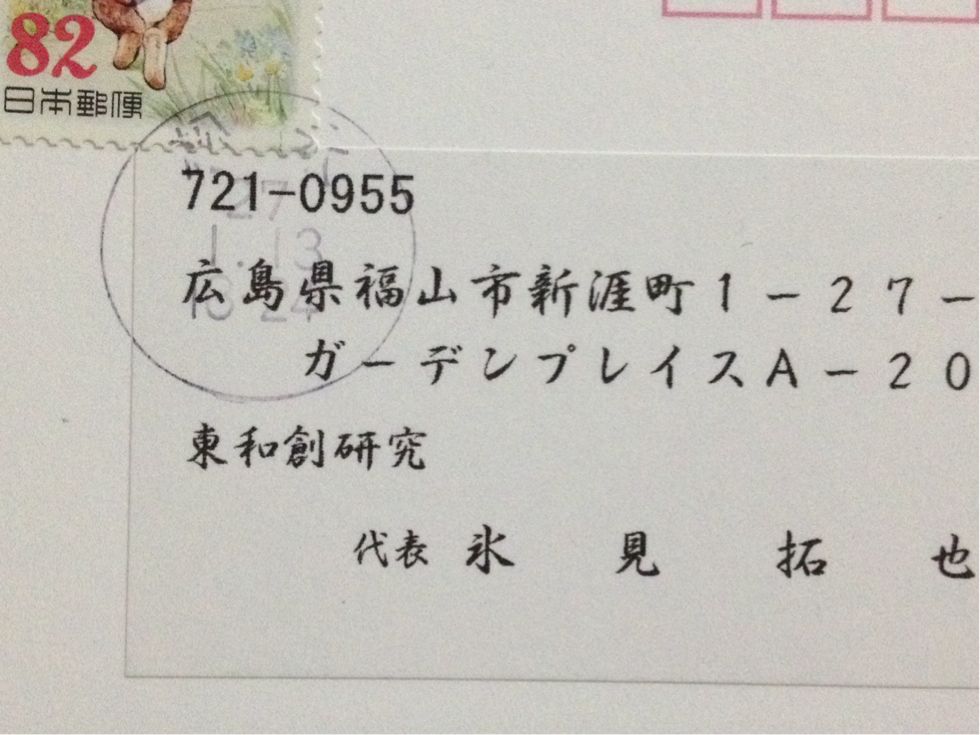 82
日本郵便
27
1.13
18-24
721-0955
広島県福山市新涯町1-27-
ガーデンプレイスA-20
東和創研究
代表 氷見拓也